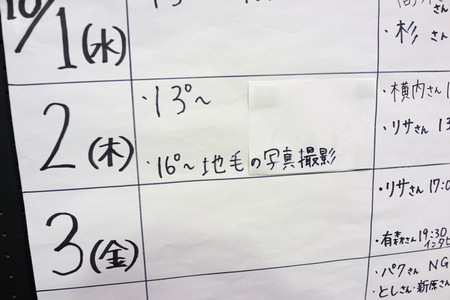 10/1(水)
・杉 さん
2(木)
・13⁰～
・16⁰～地毛の写真撮影
・横内さん 1
・リサさん 13
3(金)
・リサさん 17:0
・有森さん 19:30
インタビ
・パクさん NG
・としさん・新原さん